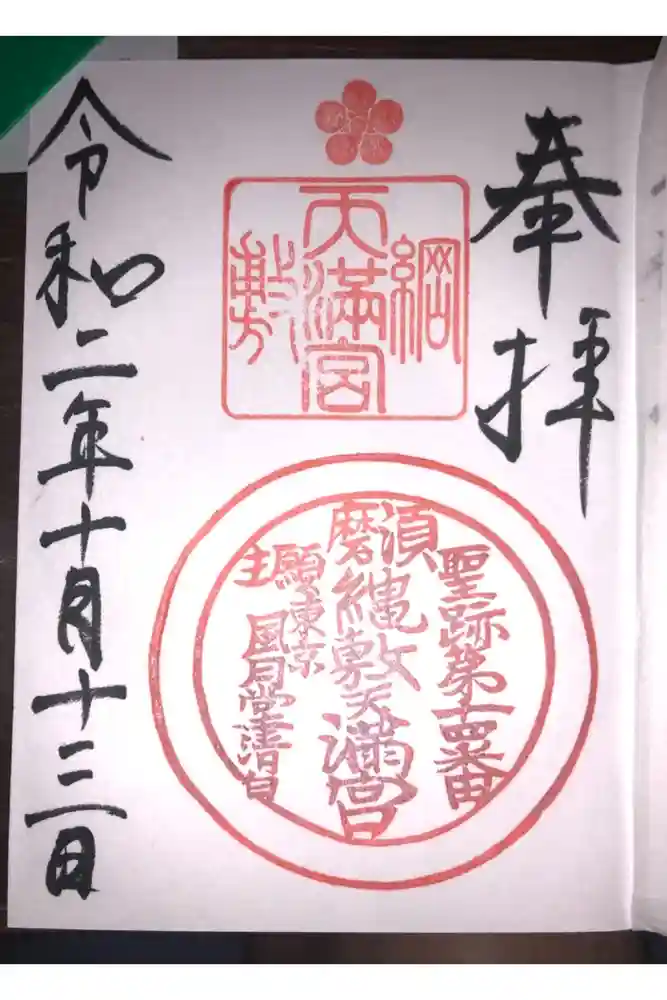 奉拝
綱
天満宮
敷
聖跡第十四番
須磨
綱敷天満宮
願主
東京
風月堂清白
令和二年十月十三日